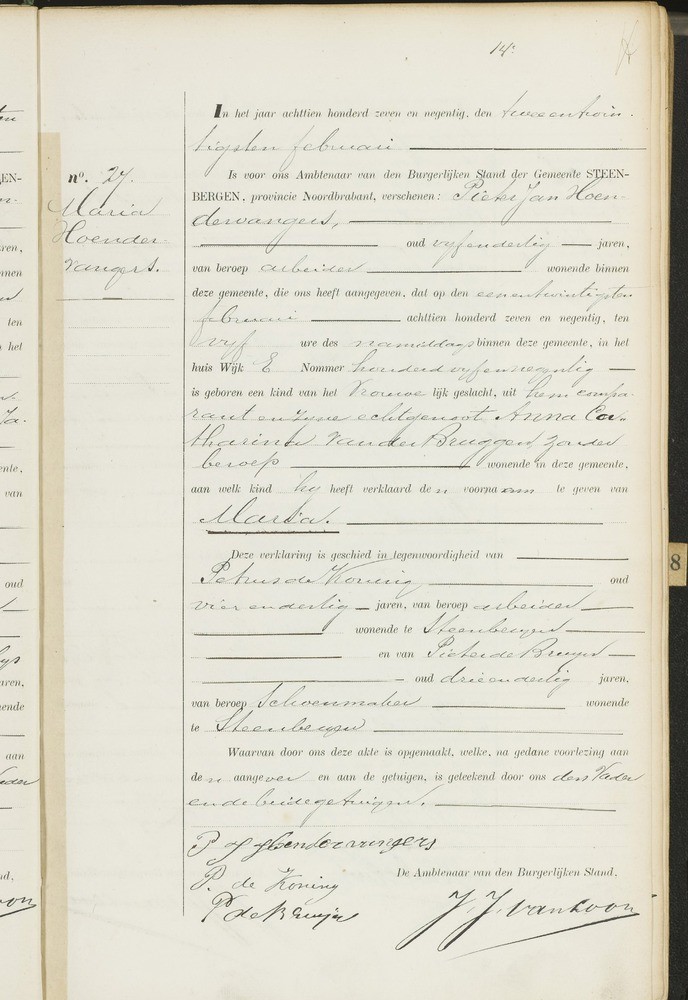 14e
nº. 27.
Maria
Hoender-
vangers.
In het jaar achttien honderd zeven en negentig, den tweeentwin-
tigsten februari
Is voor ons Ambtenaar van den Burgerlijken Stand der Gemeente STEEN-
BERGEN, provincie Noordbrabant, verschenen: Pieter Jan Hoen-
dervangers,
oud vyfendertig jaren,
van beroep arbeider wonende binnen
deze gemeente, die ons heeft aangegeven, dat op den eenentwintigsten
februari achttien honderd zeven en negentig, ten
vyf ure des namiddags binnen deze gemeente, in het
huis Wijk E Nommer honderd vyfennegentig
is geboren een kind van het Vrouwe lijk geslacht, uit hem compa-
rant en zyne echtgenoot Anna Ca-
tharina van der Bruggen, zonder
beroep wonende in deze gemeente,
aan welk kind hy heeft verklaard den voornaam te geven van
Maria.
Deze verklaring is geschied in tegenwoordigheid van
Petrus de Koning oud
vier endertig jaren, van beroep arbeider
wonende te Steenbergen
en van Pieter de Bruyn
oud drieendertig jaren,
van beroep Schoenmaker wonende
te Steenbergen
Waarvan door ons deze akte is opgemaakt, welke, na gedane voorlezing aan
den aangever en aan de getuigen, is geteekend door ons den Vader
en de beide getuigen.
P J Hoendervangers
P. de Koning
De Ambtenaar van den Burgerlijken Stand,
P de Bruijn
J. J. van Loon
8